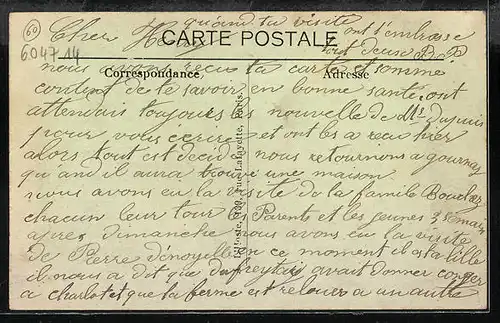 60
6047 14
quand tu visite
Cher Henri ont t'embrasse
CARTE POSTALE
tout deux
nous avons reçu ta carte et somme
Correspondance Adresse
content de te savoir en bonne santé ont
attendais toujours les nouvelle de Mr Dupuis
pour vous ecrire et ont les a recu hier
alors tout est decidé nous retournons a gournay
quand il aura trouvé une maison.
nous avons eu la visite de la famille Boucher
chacun leur tour les Parents et les jeunes 3 semaine
apres dimanche nous avons eu la visite
de Pierre en ce moment il est a lille
il nous a dit que avait donner conger
a charlot et que la ferme est relouer a un autre
Lafayette, Paris